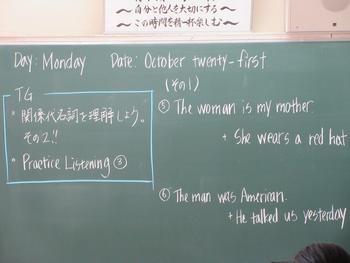 ～自分と他人を大切にする～
～この時間を精一杯楽しむ～
Day: Monday Date: October twenty-first
TG
・関係代名詞を理解しよう。
その2!!
・Practice Listening ③
(その1)
⑤ The woman is my mother.
+ She wears a red hat
⑥ The man was American.
+ He talked us yesterday